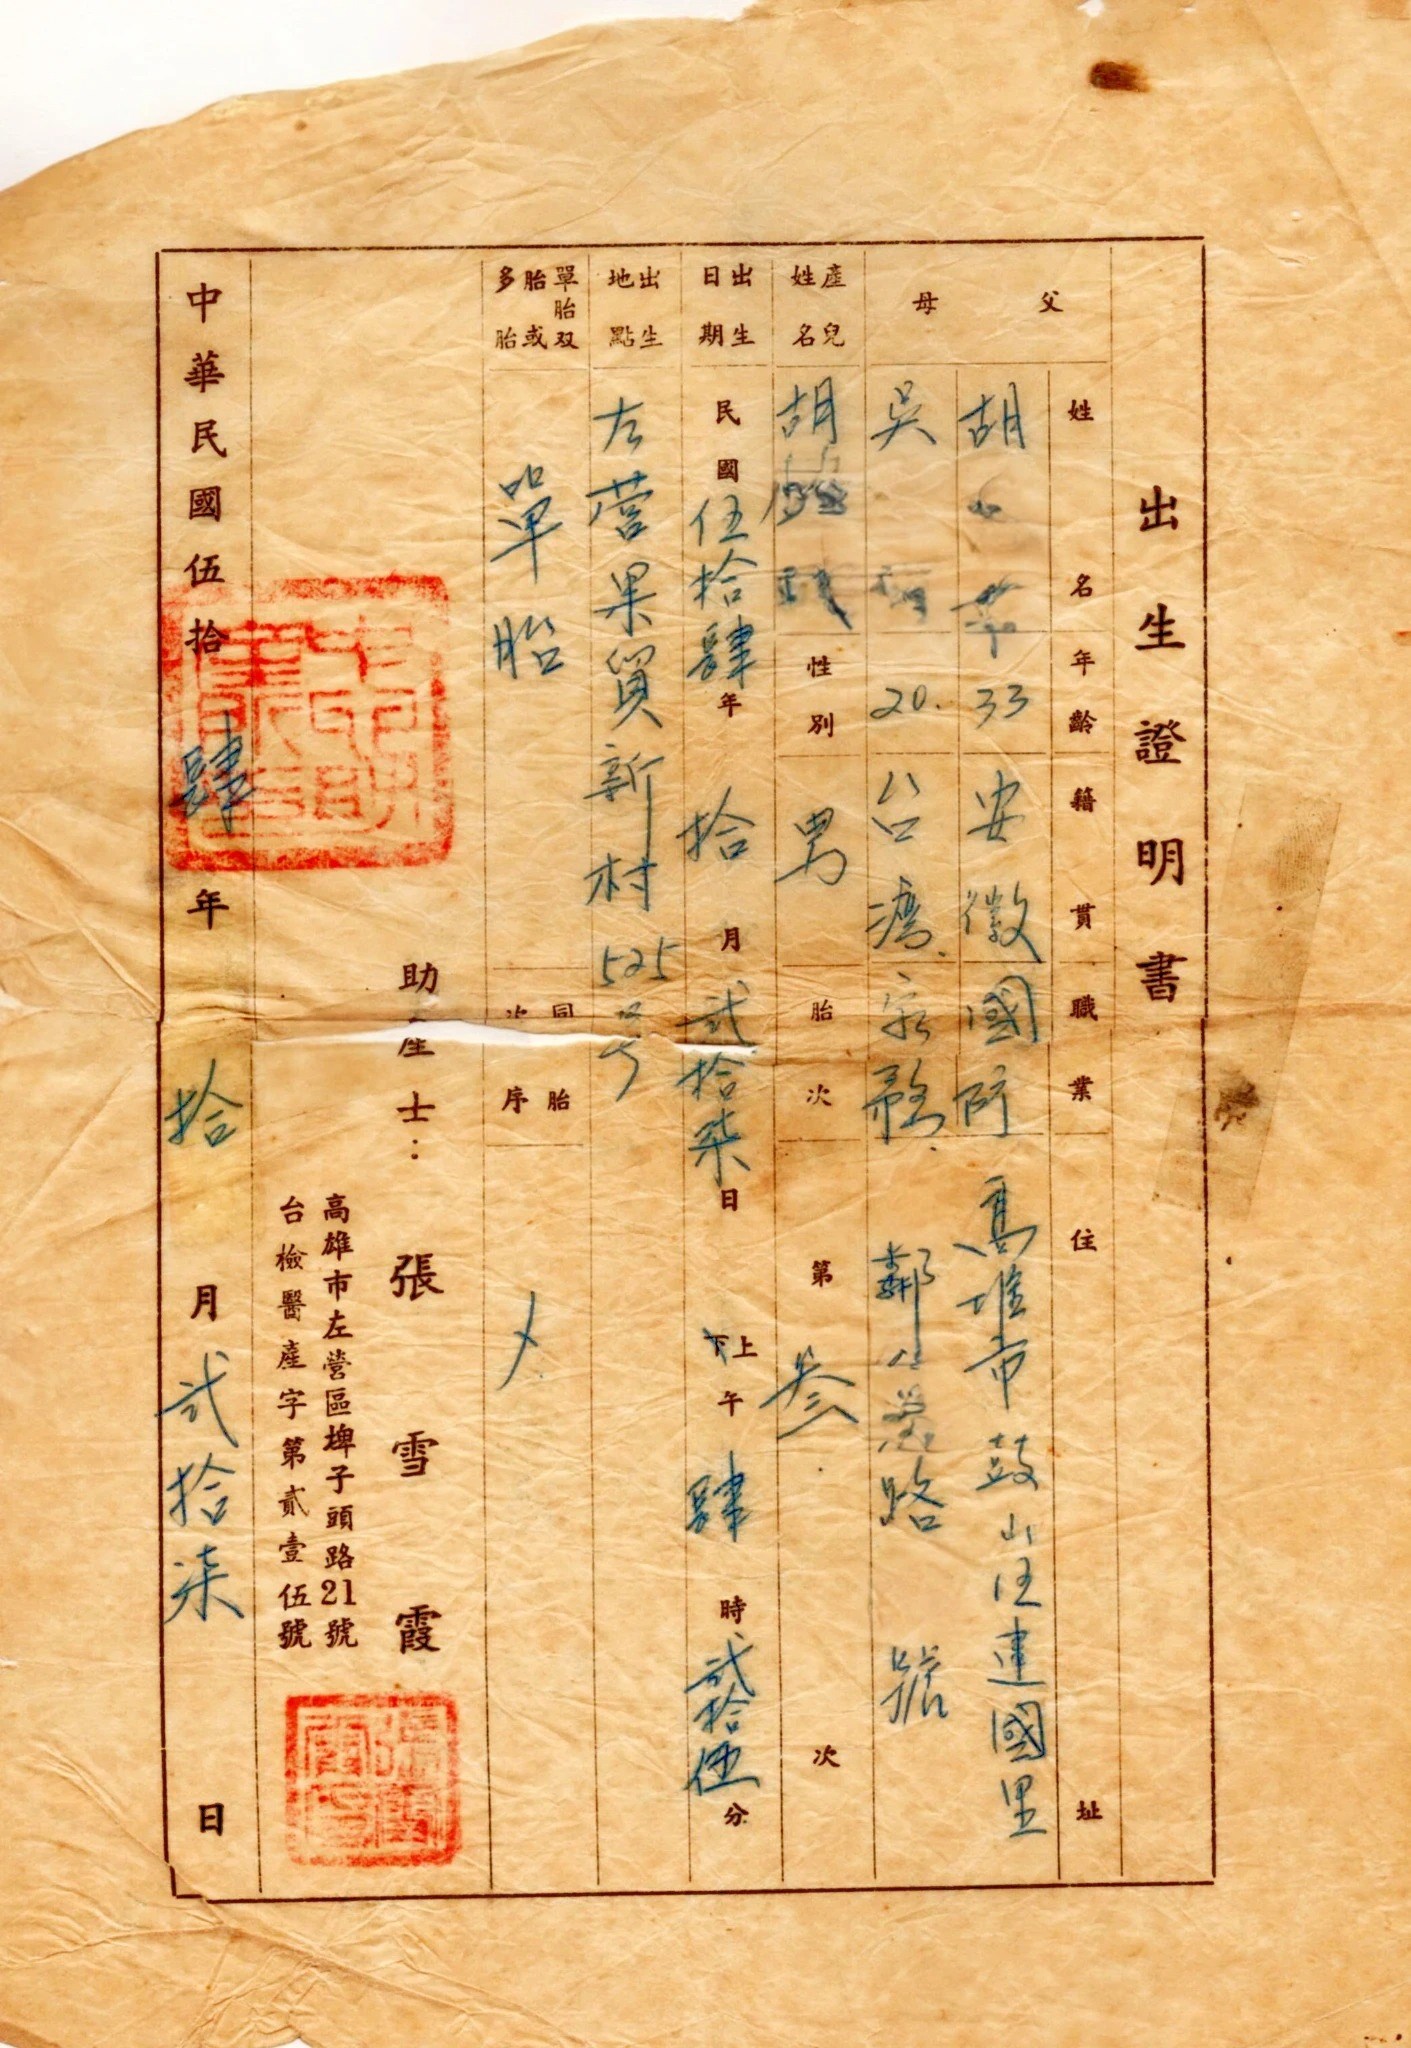 出生證明書
姓名 年齡 籍貫 職業 住址
父 胡 33 安徽 國防 高雄市鼓山区建國里
母 吳 20. 台湾. 家務. 鄰 路 號
產兒姓名 胡 性別 男 胎次 第叁次
出生日期 民國伍拾肆年拾月貳拾柒日 上下午肆時貳拾伍分
出生地點 左营果貿新村525号
單胎双胎或多胎 單胎 同胎次序
助產士：張雪霞
高雄市左營區埤子頭路21號
台檢醫產字第貳壹伍號
中華民國伍拾肆年拾月貳拾柒日